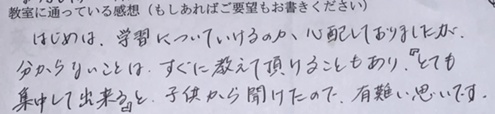 教室に通っている感想（もしあればご要望もお書きください）
はじめは、学習についていけるのか、心配しておりましたが、
分からないことは、すぐに教えて頂けることもあり、『とても
集中して出来る』と、子供から聞けたので、有難い思いです。